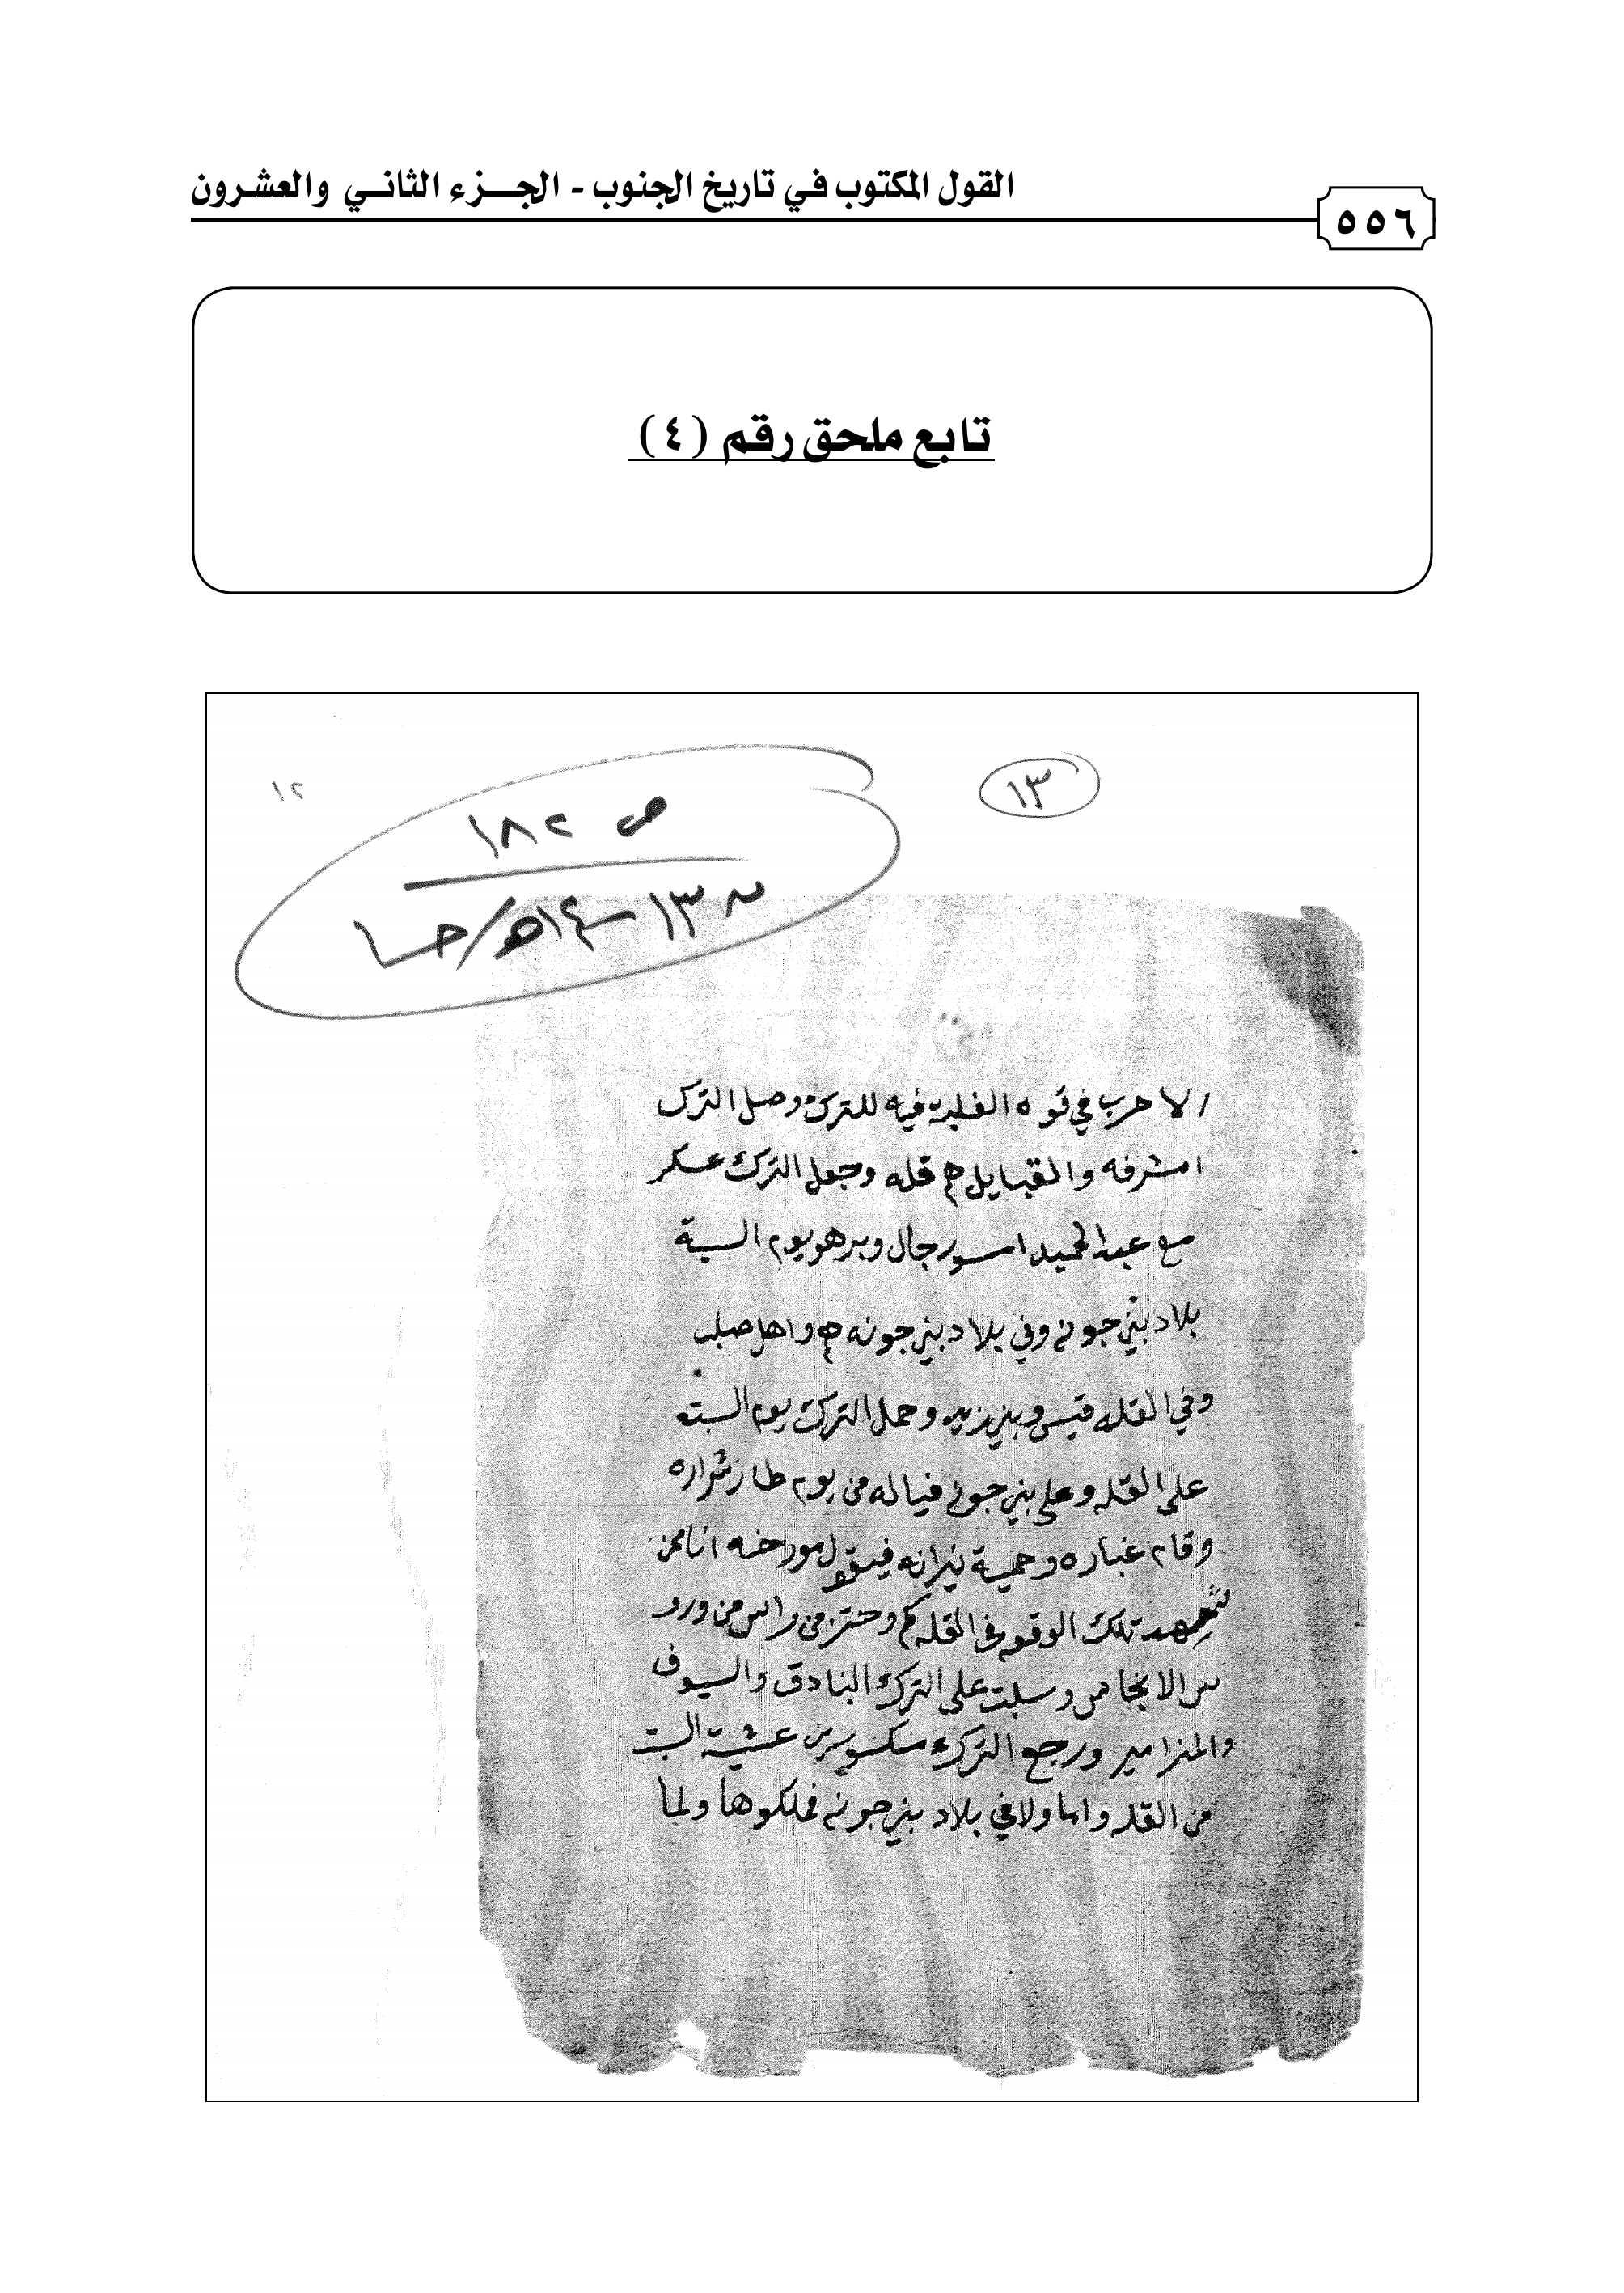 القول المكتوب في تاريخ الجنوب - الجزء الثاني والعشرون
٥٥٦
تابع ملحق رقم (٤)
١٣
١٢
ص ١٨٢
١٣ - ١٤هـ/
الا حرب في قوه الغلبه فيه للترك وصل الترك
امشرفه والقبايل هم قله وجعل الترك عسكر
مع عبدالحميد رجال وبرهو يوم السبة
بلاد بني جونه وفي بلاد بني جونه هم واهل صلب
وفي القله قيس وبني زيد وحمل الترك يوم السبت
على القله وعلى بني جونه فياله من يوم طار شراره
وقام غباره وحمية نيرانه فيقول مورخه انا ممن
شهد تلك الوقعه في القله كم وحتز من راس من
الا وسلبت على الترك البنادق والسيوف
والمزامير ورجع الترك مكسورين عشية السبت
من القله واما ولا في بلاد بني جونه فملكوها ولما